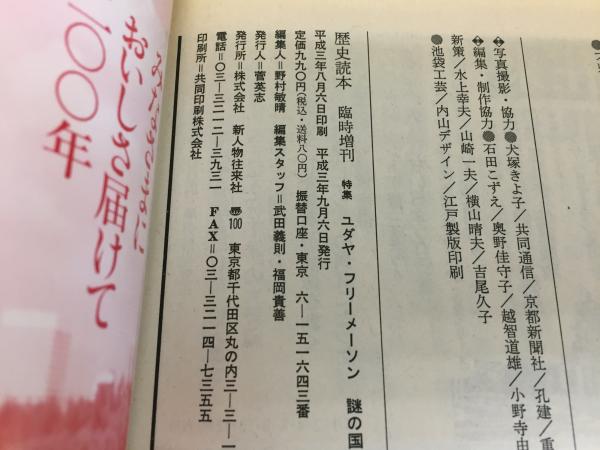 ⇔写真撮影・協力●犬塚きよ子／共同通信／京都新聞社／孔建／重
⇔編集・制作協力●石田こずえ／奥野佳守子／越智道雄／小野寺由
新策／水上幸夫／山崎一夫／横山晴夫／吉尾久子
●池袋工芸／内山デザイン／江戸製版印刷
歴史読本 臨時増刊 特集 ユダヤ・フリーメーソン 謎の国
平成三年八月六日印刷 平成三年九月六日発行
定価九九〇円(税込・送料八〇円) 振替口座・東京 六―一五一六四三番
編集人＝野村敏晴 編集スタッフ＝武田義則・福岡貴善
発行人＝菅英志
発行所＝株式会社 新人物往来社 〠100 東京都千代田区丸の内三―三―一
電話＝〇三―三二一二―三九三一 FAX＝〇三―三二一四―七三五五
印刷所＝共同印刷株式会社
おいしさ届けて
一〇〇年